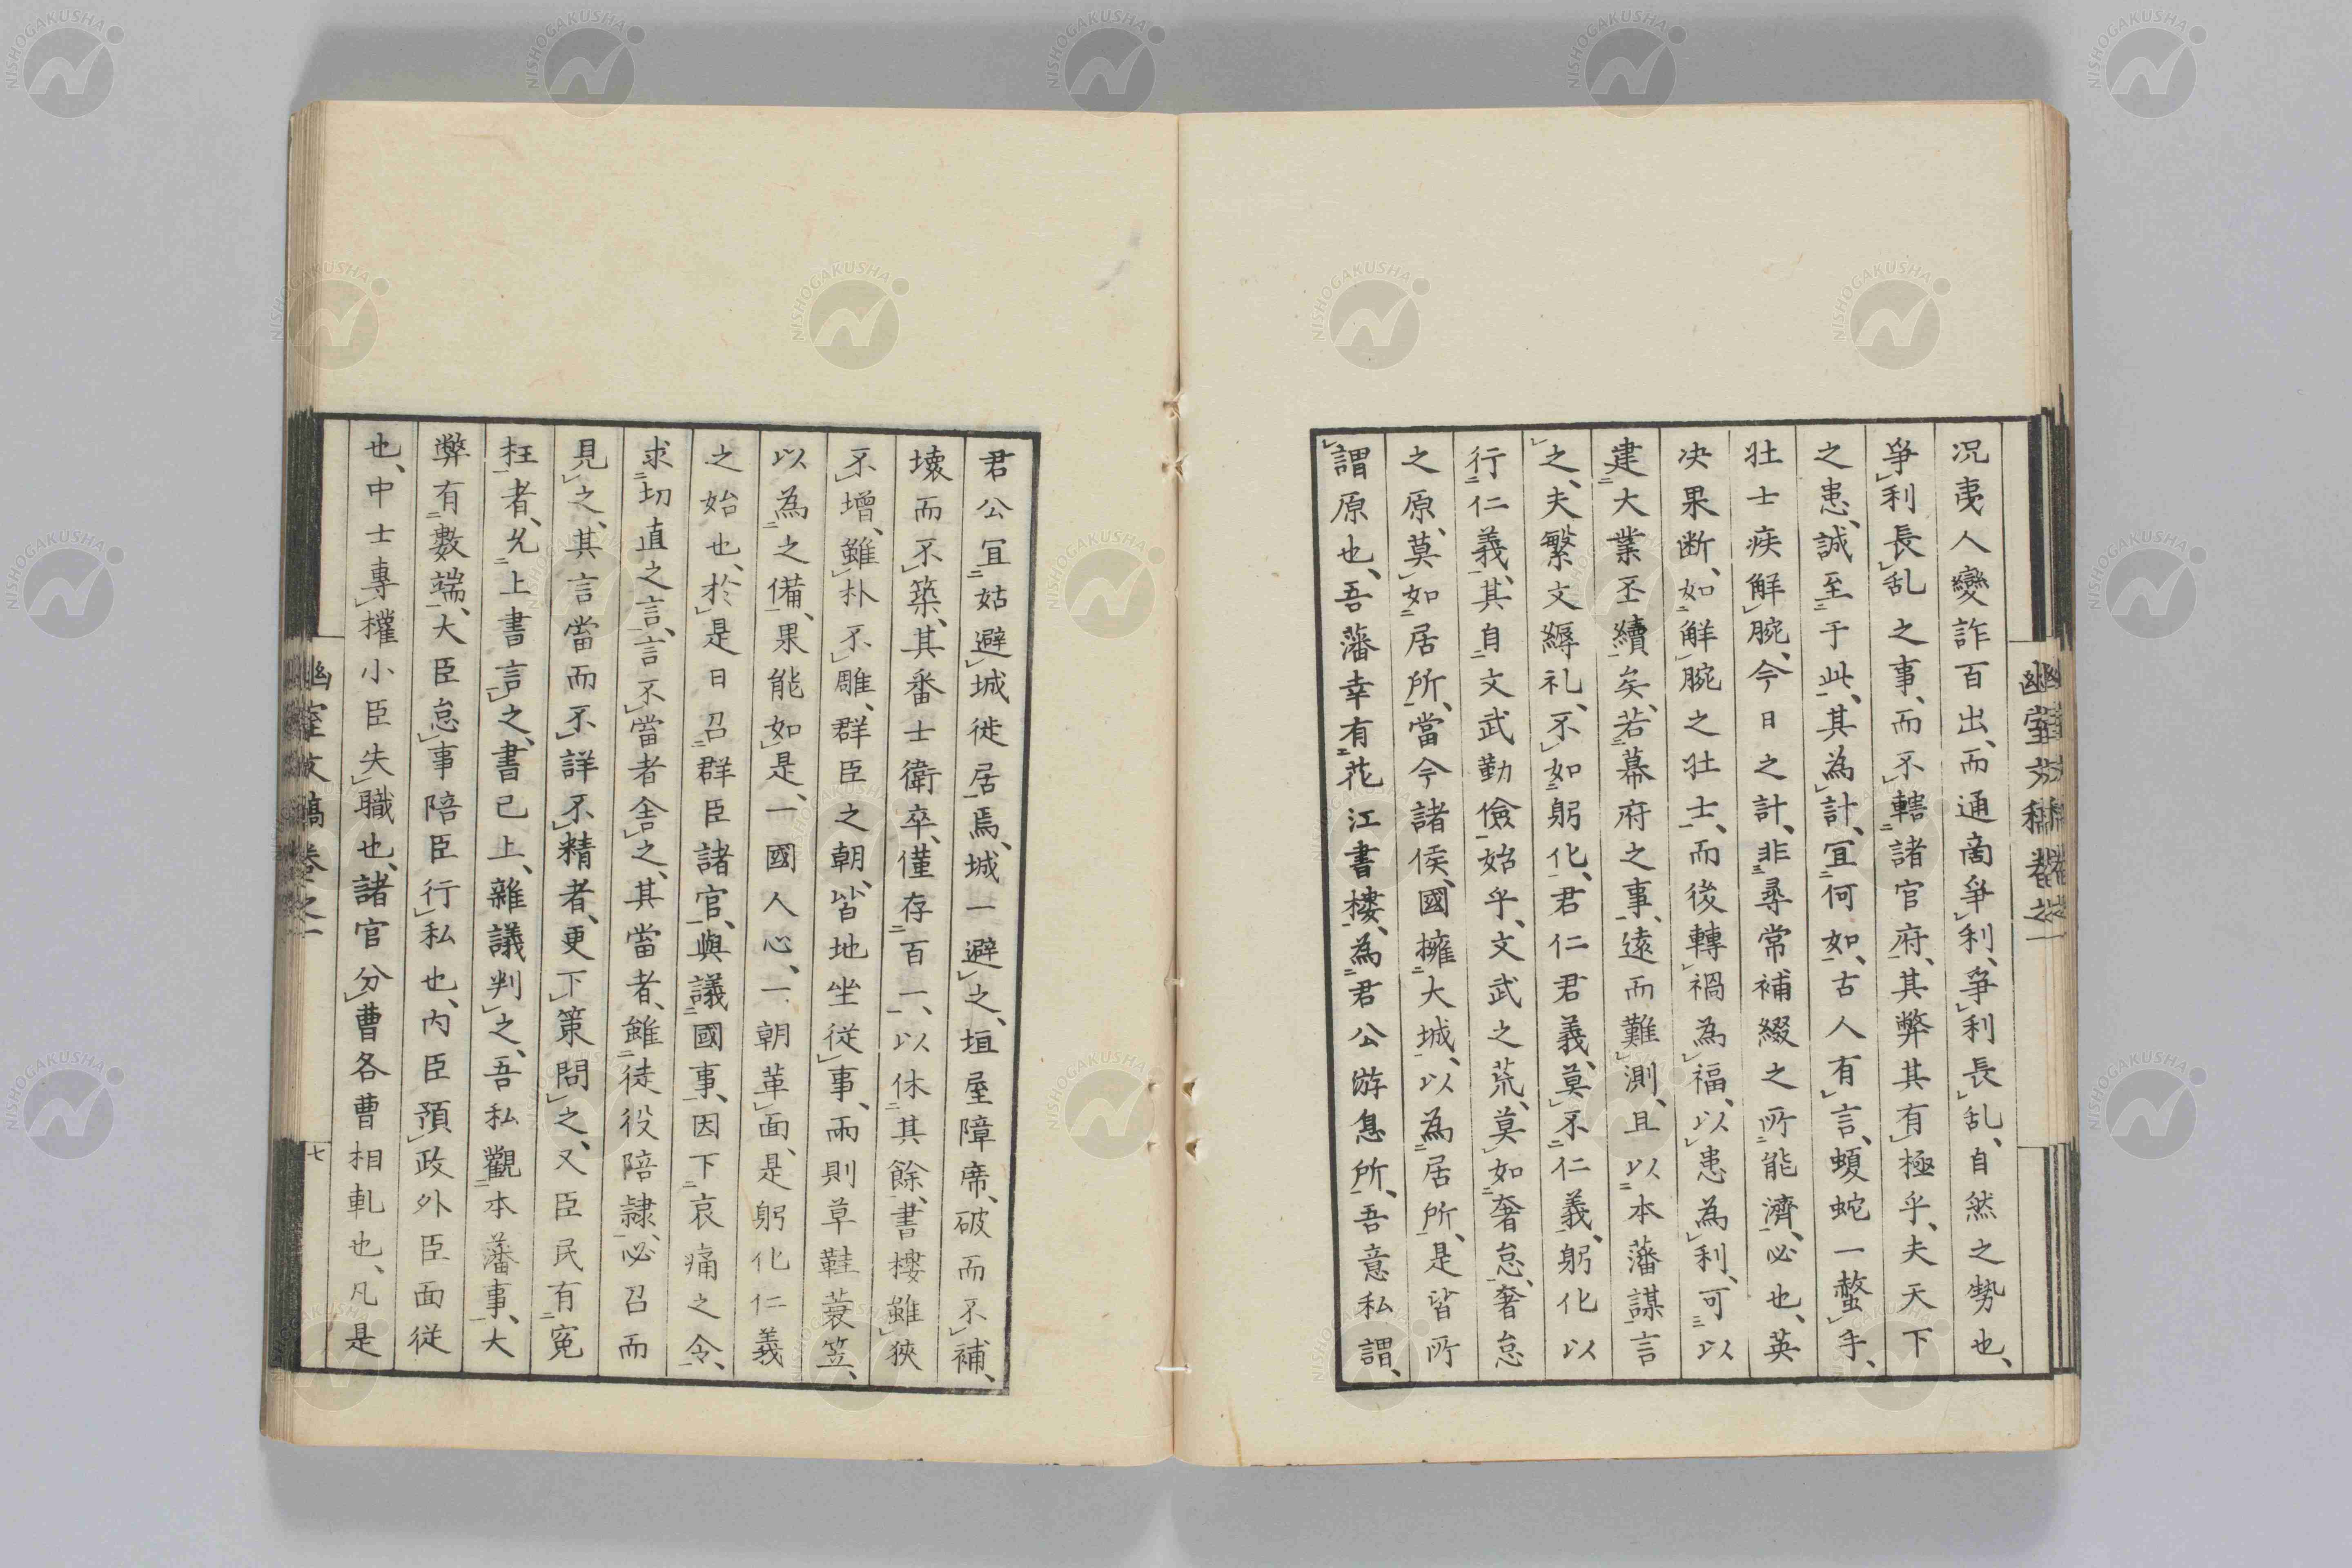 況夷人變詐百出、而通商爭利、爭利長乱、自然之勢也、
爭利長乱之事、而不轄諸官府、其弊其有極乎、夫天下
之患、誠至于此、其為計、宜何如、古人有言、蝮蛇一螫手、
壮士疾解腕、今日之計、非尋常補綴之所能濟、必也、英
决果断、如解腕之壮士、而後轉禍為福、以患為利、可以
建大業丕續矣、若幕府之事、遠而難測、且以本藩謀言
之、夫繁文縟礼、不如躬化、君仁君義、莫不仁義、躬化以
行仁義、其自文武勤儉始乎、文武之荒、莫如奢怠、奢怠
之原、莫如居所、當今諸侯、國擁大城、以為居所、是皆所
謂原也、吾藩幸有花江書樓、為君公游息所、吾意私謂、
君公宜姑避城徙居焉、城一避之、垣屋障席、破而不補、
壊而不築、其番士衛卒、僅存百一、以休其餘、書樓雖狹
不增、雖朴不雕、群臣之朝、皆地坐従事、雨則草鞋蓑笠、
以為之備、果能如是、一國人心、一朝革面、是躬化仁義
之始也、於是日召群臣諸官、與議國事、因下哀痛之令、
求切直之言、言不當者舎之、其當者、雖徒役陪隷、必召而
見之、其言當而不詳不精者、更下策問之、又臣民有寃
枉者、允上書言之、書已上、雜議判之、吾私觀本藩事、大
弊有數端、大臣怠事陪臣行私也、内臣預政外臣面従
也、中士專權小臣失職也、諸官分曹各曹相軋也、凡是
幽室文稿卷之一
七